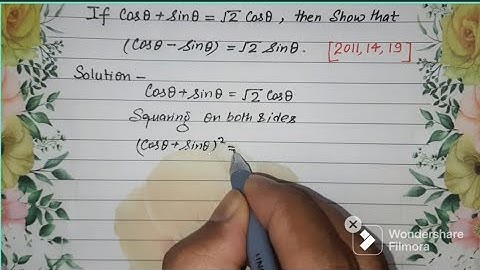 If Cosθ + Sinθ = √2 Cosθ, then Show that
(Cosθ - Sinθ) = √2 Sinθ. [2011, 14, 19]
Solution -
Cosθ + Sinθ = √2 Cosθ
Squaring on both sides
(Cosθ + Sinθ)² =
Wondershare
Filmora